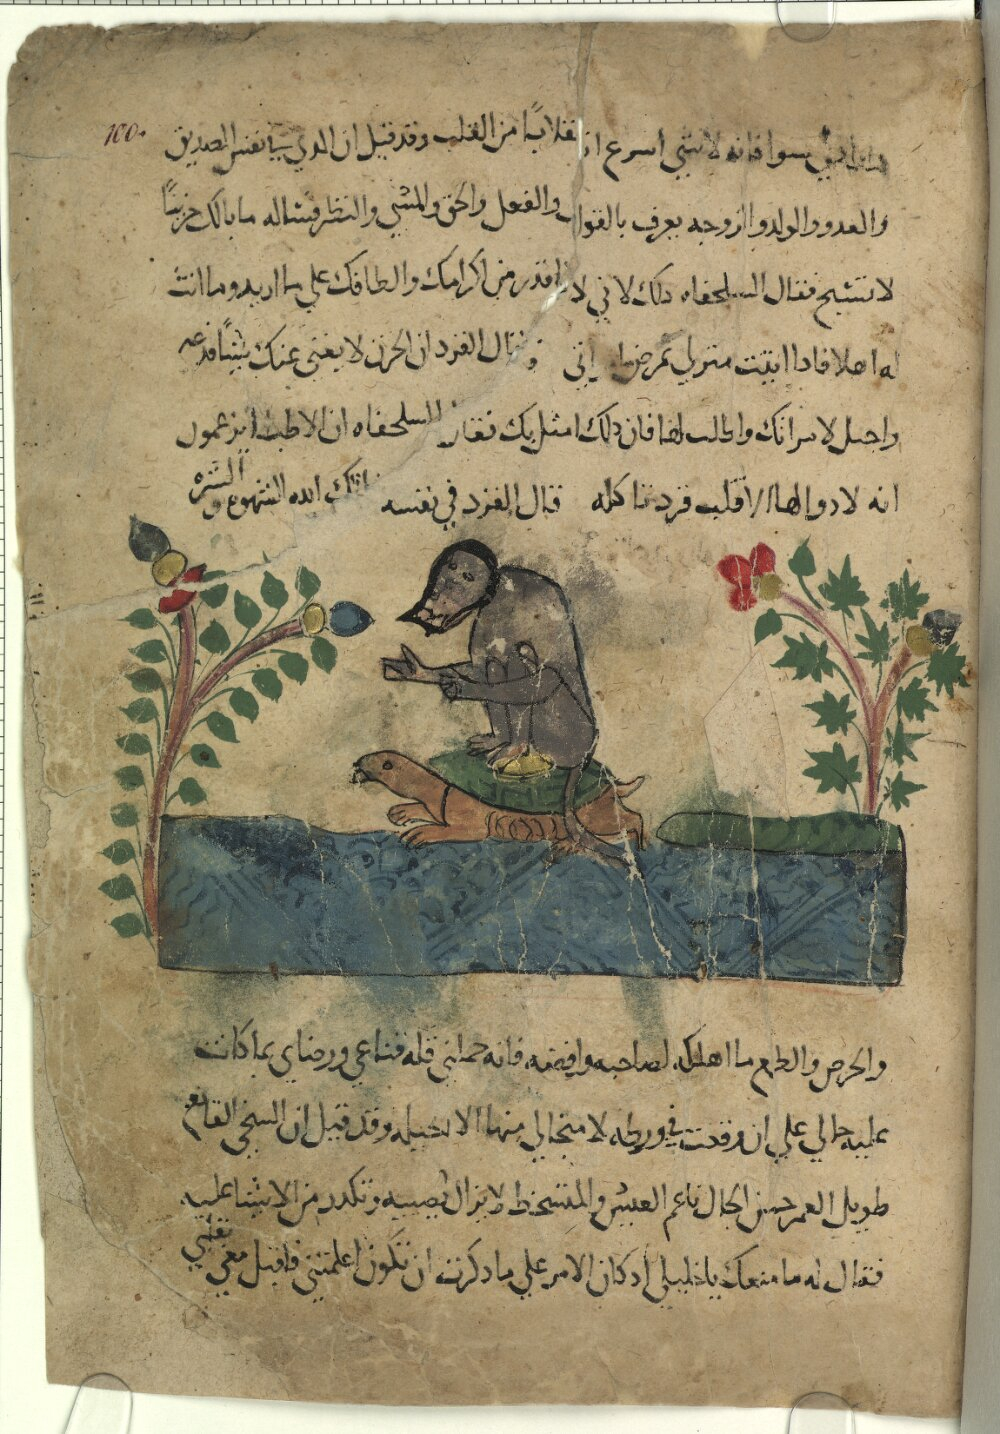 100.
سوا فانه لا شي اسرع انقلابًا من القلب وقد قيل ان الدي في نفس الصديق
والعدو والولد والزوجه يعرف بالقول والفعل والحق والمشي والنظر فساله ما بالك حزينًا
لا تنتشيح فقال السلحفاه دلك لاني لا اقدر من اكرامك والطافك علي ما اريد وما انت
له اهلا فادا اتيت منزلي تمرض اتي فقال القرد ان الحزن لا يغني عنك شيًا فدعه
واجمل لامراتك واطلب لها فان دلك امثل بك فقال السلحفاه ان الاطبا يزعمون
انه لا دوا لها الا قلب قرد تاكله قال القرد في نفسه قاتلك الله الشهوه والشره
والحرص والطمع ما اهلك لصاحبه وافضحه فانه حملني قله قناعي ورضاي بما كانت
عليه حالي علي ان وقعت في ورطه لا منجا لي منها الا بحيله وقد قيل ان السخي القانع
طويل العمر حسن الحال ناعم العيش والمتسخط لا يزال يصيبه وتكدر من الاشيا عليه
فقال له ما منعك يا خليلي اد كان الامر علي ما دكرت ان تكون اعلمتني فاقبل معي بقلبي